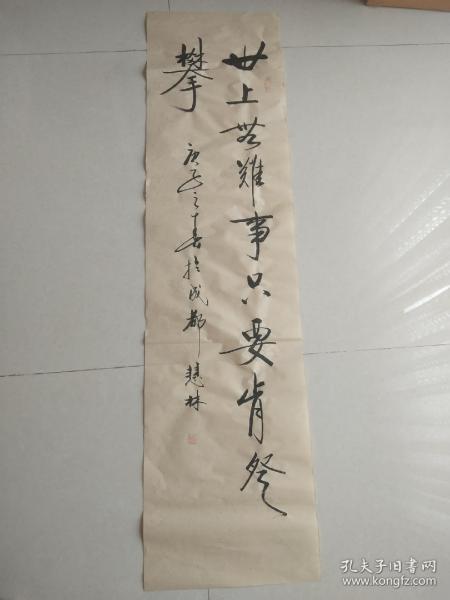 世上无難事只要肯登
攀
庚子之春書於成都 慧林
孔夫子旧书网
www.kongfz.com